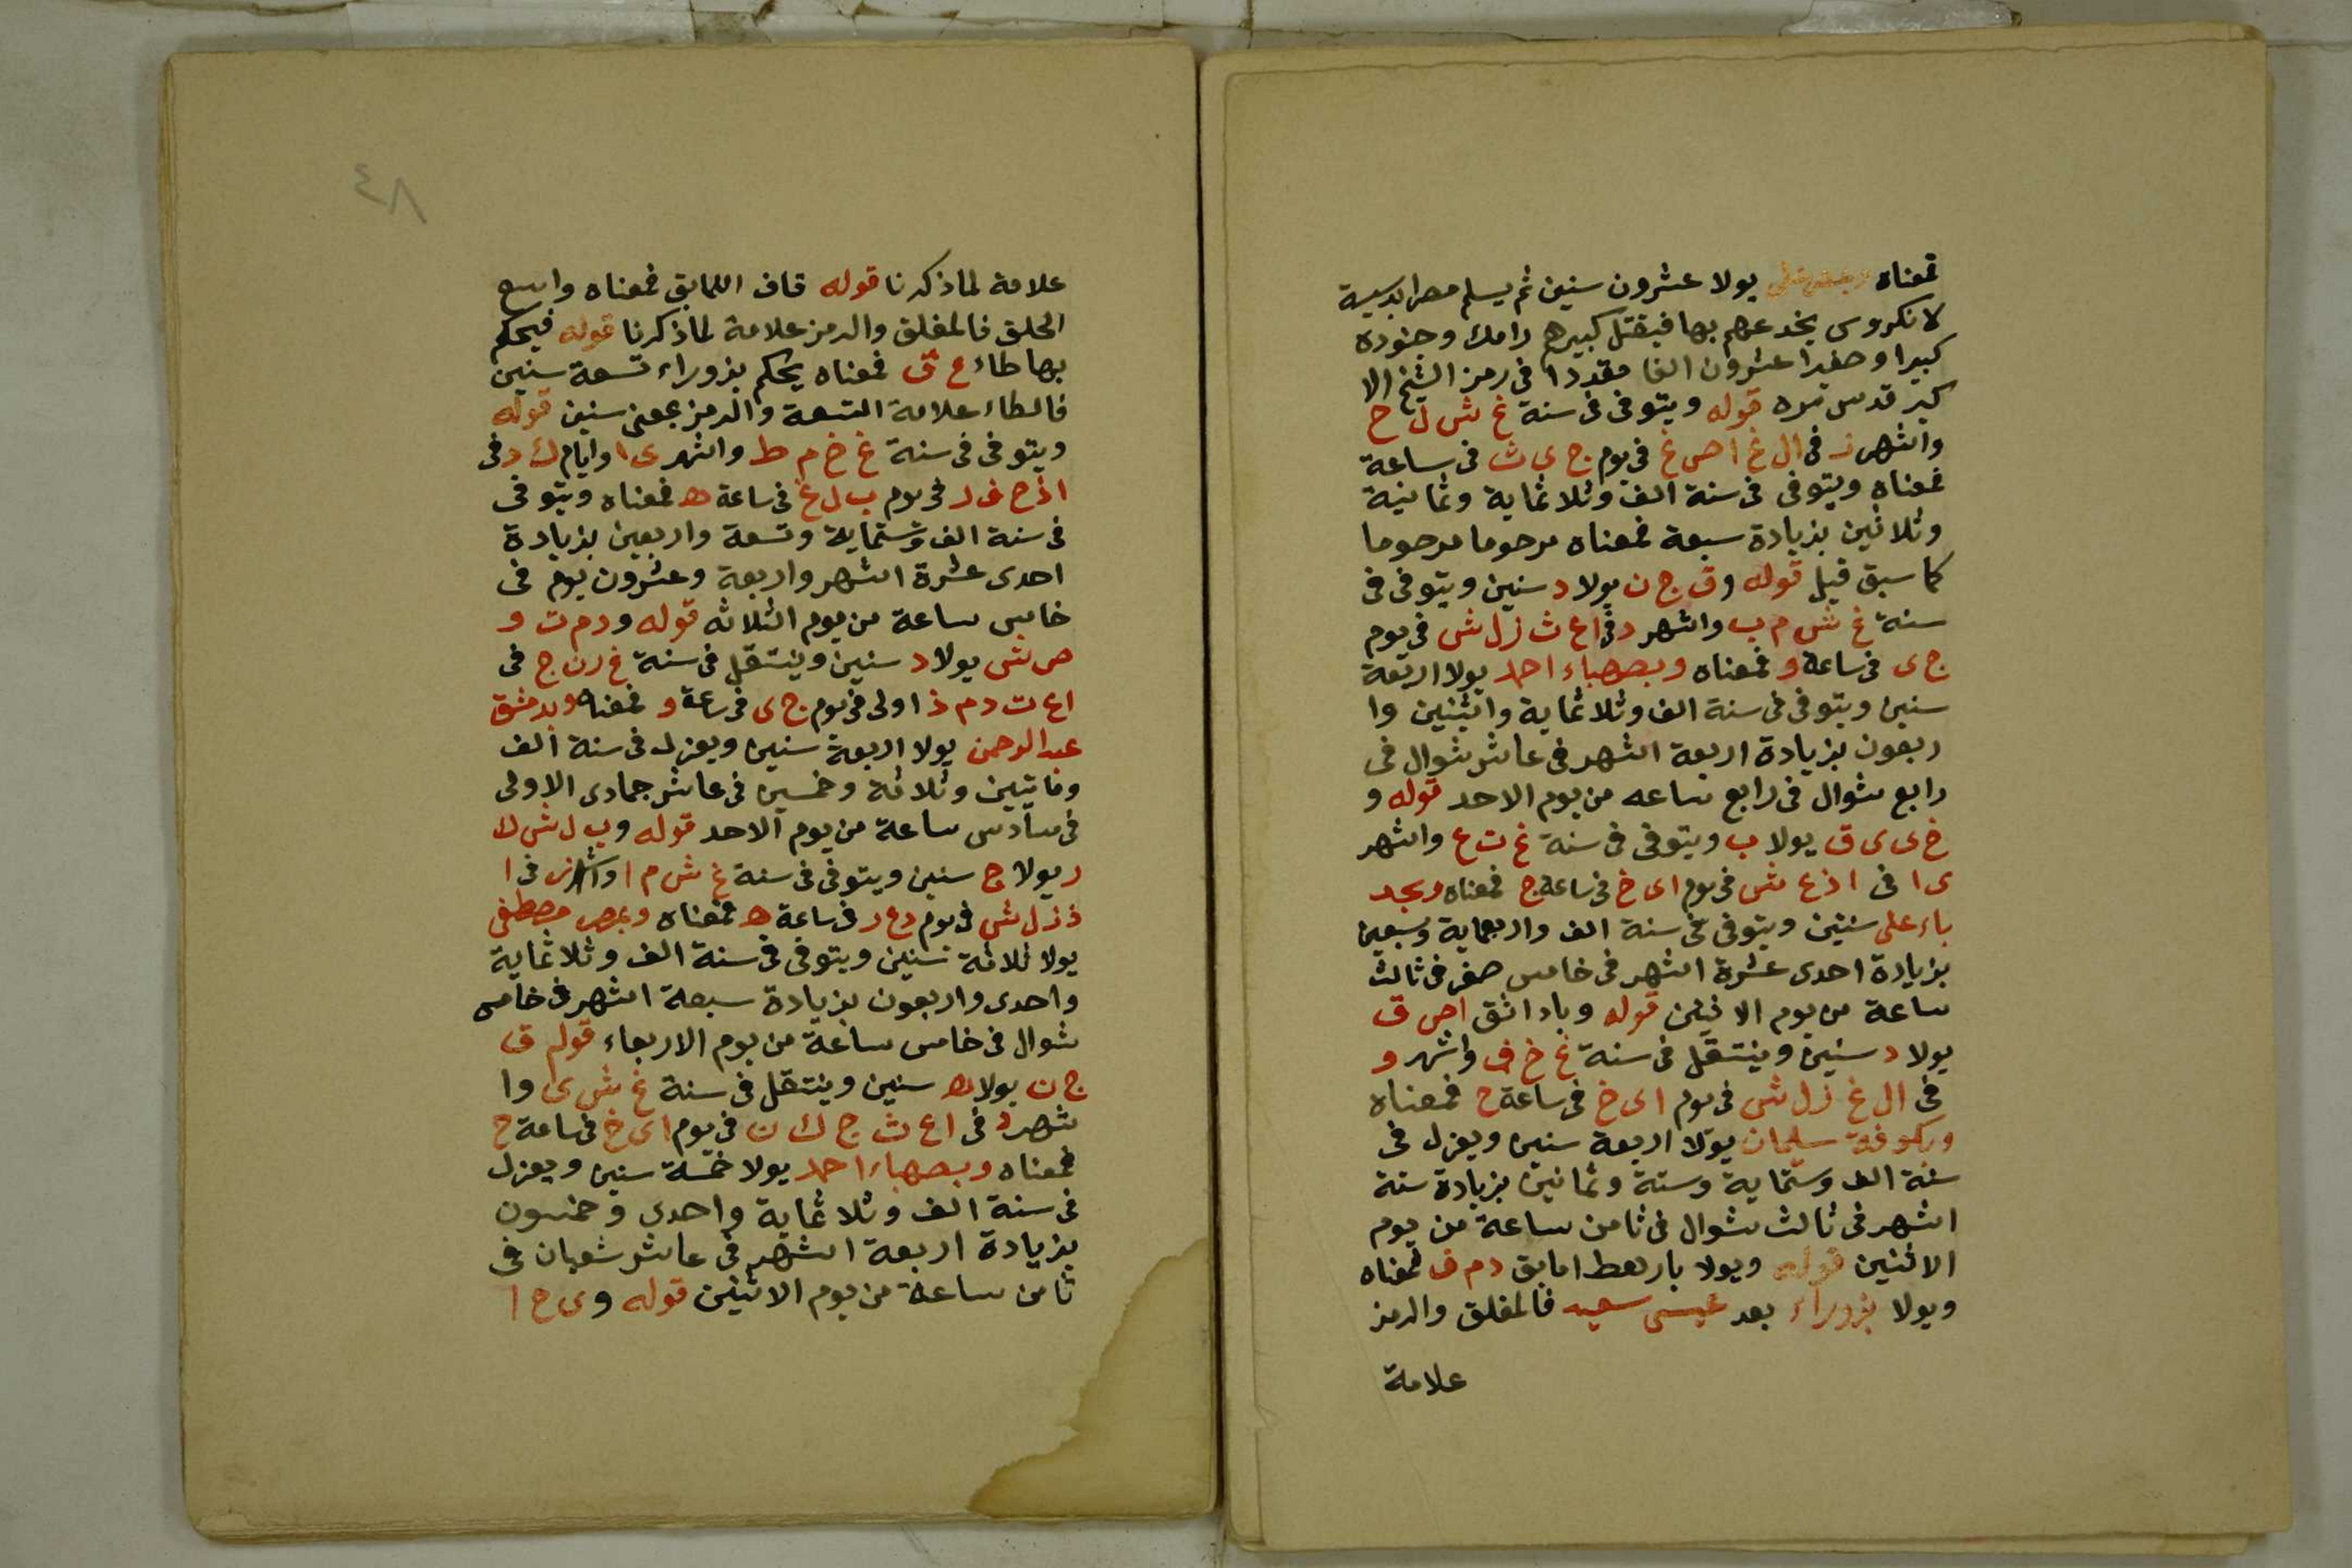 فمعناه يولا عشرون سنين ثم يسلم مصرا بدسيسة
لانكروس يخدعهم بها فيقتل كبيرهم رامك وجنوده
كبيرا وصغيرا عشرون الفا مقدرا فى رمز الشيخ الا
كبر قدس سره قوله ويتوفى فى سنة غ ش ل ح
واشهر ز فى ال غ ا ص غ فى يوم ج ى ث فى ساعة
فمعناه ويتوفى فى سنة الف وثلاثماية وثمانية
وثلاثين بزيادة سبعة فمعناه مرحوما مرحوما
كما سبق قيل قوله وق ج ن يولا د سنين ويتوفى فى
سنة غ ش م ب واشهر د فى ا ع ث ز ل ش فى يوم
ج ى فى ساعة و فمعناه وبصهباء احمد يولا اربعة
سنين ويتوفى فى سنة الف وثلاثماية واثنين وا
ربعون بزيادة اربعة اشهر فى عاشر شوال فى
رابع شوال فى رابع ساعه من يوم الاحد قوله و
خ ى ى ق يولا ب ويتوفى فى سنة غ ت ع واشهر
ى ا فى ا ذ ع ش فى يوم ا ى خ فى ساعة ج فمعناه وبجد
باء على سنتين ويتوفى فى سنة الف واربعماية وسبعين
بزيادة احدى عشرة اشهر فى خامس صفر فى ثالث
ساعة من يوم الاثنين قوله وباداثق ا ص ق
يولا د سنين وينتقل فى سنة غ خ ف واشهر و
فى ال غ ز ل ش فى يوم ا ى خ فى ساعة ح فمعناه
وبكوفة سليمان يولا اربعة سنين ويعزل فى
سنة الف وستماية وستة وثمانين بزيادة ستة
اشهر فى ثالث شوال فى ثامن ساعة من يوم
الاثنين قوله ويولا بارهط امابق د م ف فمعناه
ويولا بزوراء بعد عيسى سعيد فالمغلق والرمز
علامة
٤٨
علامة لما ذكرنا قوله قاف اللمابق فمعناه واسع
الخلق فالمغلق والرمز علامة لما ذكرنا قوله فيحكم
بها طاء ع ق فمعناه يحكم بزوراء تسعة سنين
فالطاء علامة التسعة والرمز بمعنى سنين قوله
ويتوفى فى سنة غ خ م ط واشهر ى ا وايام ك د فى
ا ذ ح ف ر فى يوم ب ل غ فى ساعة ه فمعناه ويتوفى
فى سنة الف وستماية وتسعة واربعين بزيادة
احدى عشرة اشهر واربعة وعشرون يوم فى
خامس ساعة من يوم الثلاثه قوله و د م ت و
ص ش يولا د سنين وينتقل فى سنة غ ر ن ج فى
ا ع ت د م ذ اولى فى يوم ج ى فى ساعة و فمعناه وبدمشق
عبدالرحمن يولا اربعة سنين ويعزل فى سنة الف
وماتيين وثلاثة وخمسين فى عاشر جمادى الاولى
فى سادس ساعة من يوم الاحد قوله و ب ل ش ك
ر يولا ج سنين ويتوفى فى سنة غ ش م ا واشهر ز فى ا
ذ ز ل ش فى يوم د ع ر فى ساعة ه فمعناه وبمصر مصطفى
يولا ثلاثة سنين ويتوفى فى سنة الف وثلاثماية
واحدى واربعون بزيادة سبعة اشهر فى خامس
شوال فى خامس ساعة من يوم الاربعاء قوله ق
ج ن يولا ه سنين وينتقل فى سنة غ ش ى وا
شهر د فى ا ع ث ج ك ن فى يوم ا ى خ فى ساعة ح
فمعناه وبصهباء احمد يولا خمسة سنين ويعزل
فى سنة الف وثلاثماية واحدى وخمسون
بزيادة اربعة اشهر فى عاشر شعبان فى
ثامن ساعة من يوم الاثنين قوله و ى ح ا